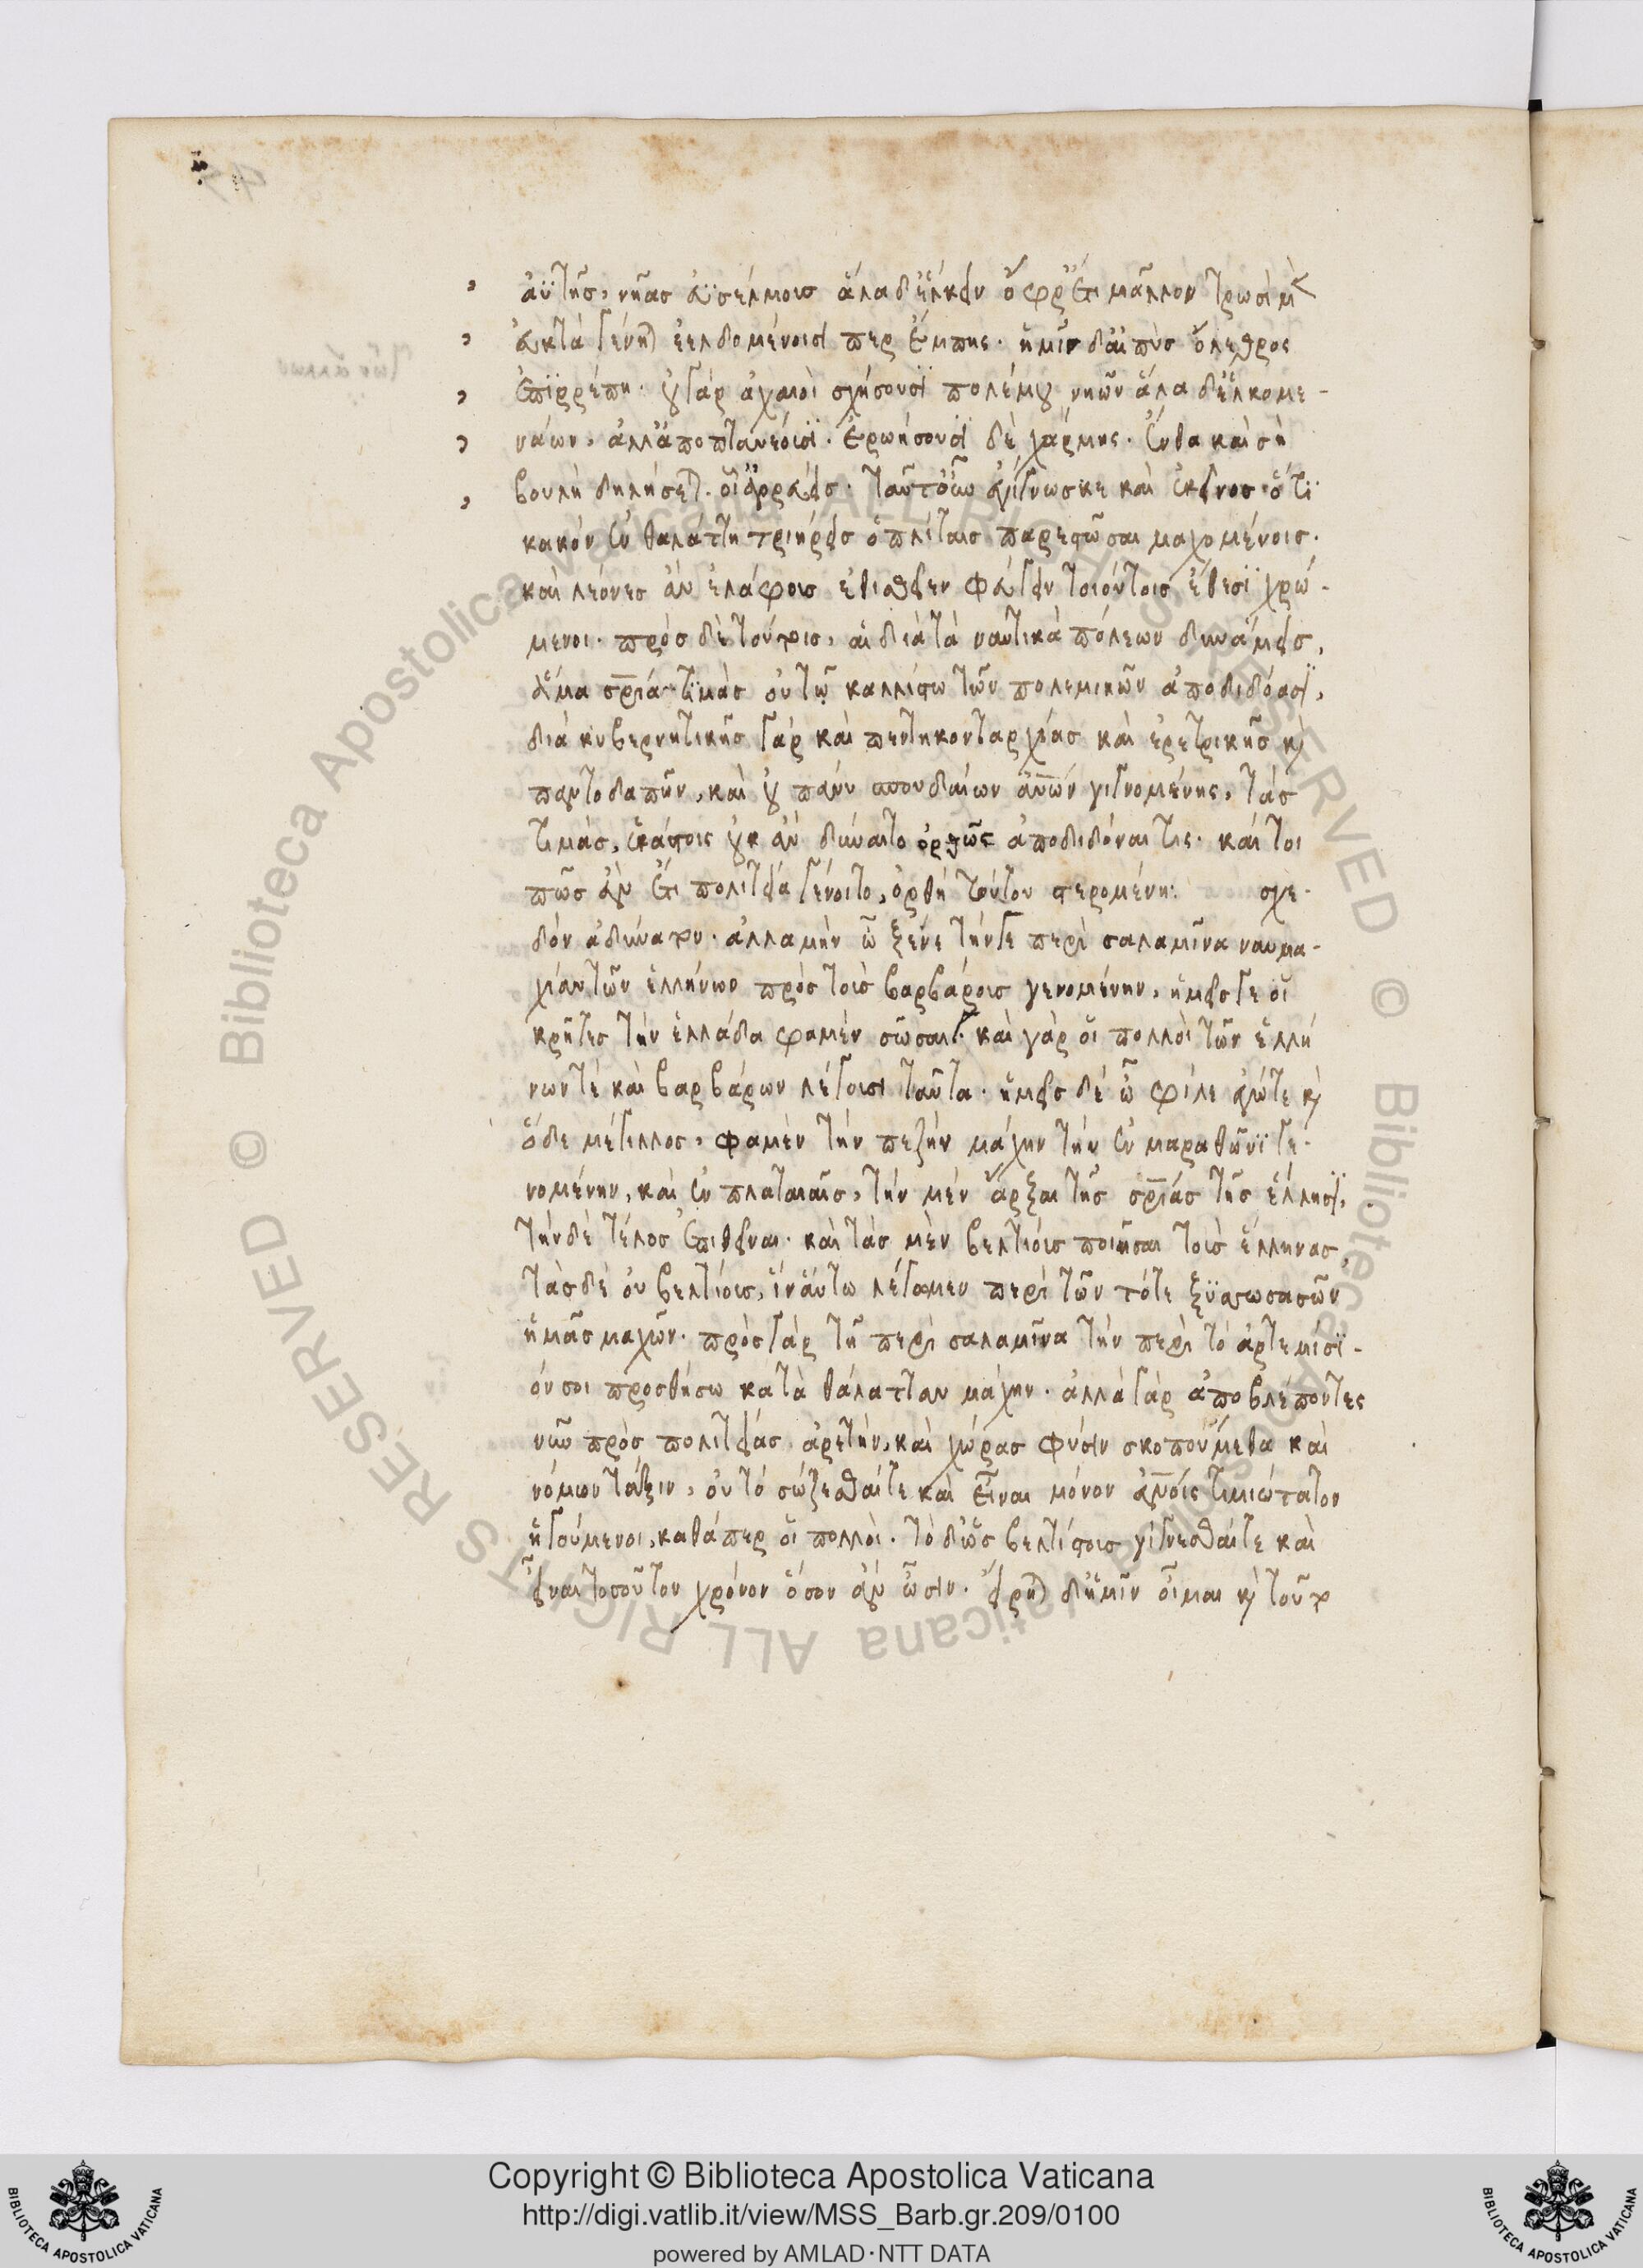 ἀϋτῆς, νῆας ἐϋσέλμοις ἅλαδ' ἕλκειν ὄφρ' ἔτι μᾶλλον τρωσὶ μὲν
εὐκτὰ γένηται ἐελδομένοισι περ ἔμπης. ἡμῖν δ' αἰπὺς ὄλεθρος
ἐπιρρέπῃ. οὐ γὰρ ἀχαιοὶ σχήσουσι πολέμου νηῶν ἅλαδ' ἑλκομε-
νάων, ἀλλ' ἀποπτανέουσι. ἐρωήσουσι δὲ χάρμης. ἔνθα κε σὴ
βουλὴ δηλήσεται. οἷ' ἀγορεύεις. ταῦτ' οὖν ἐγίγνωσκε καὶ ἐκεῖνος ὅτι
κακὸν ἐν θαλάττῃ τριήρεις ὁπλίταις παρεστῶσαι μαχομένοις.
καὶ λέοντες ἂν ἐλάφους ἐθισθεῖεν φεύγειν τοιούτοις ἔθεσι χρώ-
μενοι. πρὸς δὲ τούτοις, αἱ διὰ τὰ ναυτικὰ πόλεων δυνάμεις,
ἅμα σωτηρίᾳ τιμὰς οὐ τῷ καλλίστῳ τῶν πολεμικῶν ἀποδιδόασι,
διὰ κυβερνητικῆς γὰρ καὶ πεντηκονταρχίας καὶ ἐρετικῆς καὶ
παντοδαπῶν, καὶ οὐ πάνυ σπουδαίων ἀνθρώπων γιγνομένης, τὰς
τιμὰς, ἑκάστοις οὐκ ἂν δύναιτο ὀρθῶς ἀποδιδόναι τις. καί τοι
πῶς ἂν ἔτι πολιτεία γένοιτο, ὀρθὴ τούτου στερομένη: σχε-
δὸν ἀδύνατον. ἀλλὰ μὴν ὦ ξένε τήν γε περὶ σαλαμῖνα ναυμα-
χίαν τῶν ἑλλήνων πρὸς τοὺς βαρβάρους γενομένην, ἡμεῖς γε οἱ
κρῆτες τὴν ἑλλάδα φαμὲν σῶσαι. καὶ γὰρ οἱ πολλοὶ τῶν ἑλλή
νων τὲ καὶ βαρβάρων λέγουσι ταῦτα. ἡμεῖς δέ ὦ φίλε ἐγώ τε καὶ
ὅδε μέγιλλος, φαμὲν τὴν πεζὴν μάχην τὴν ἐν μαραθῶνι γε-
νομένην, καὶ ἐν πλαταιαῖς, τὴν μὲν ἄρξαι τῆς σωτηρίας τοῖς ἕλλησι,
τὴν δὲ τέλος ἐπιθεῖναι. καὶ τὰς μὲν βελτίους ποιῆσαι τοὺς ἕλληνας
τὰς δὲ οὐ βελτίους, ἵν' οὕτω λέγωμεν περὶ τῶν τότε ξυσσωσασῶν
ἡμᾶς μαχῶν. πρὸς γὰρ τῇ περὶ σαλαμῖνα τὴν περὶ τὸ ἀρτεμίσι-
όν σοι προσθήσω κατὰ θάλατταν μάχην. ἀλλὰ γὰρ ἀποβλέποντες
νῦν πρὸς πολιτείας ἀρετὴν, καὶ χώρας φύσιν σκοπούμεθα καὶ
νόμων τάξιν, οὐ τὸ σώζεσθαί τε καὶ εἶναι μόνον ἀνθρώποις τιμιώτατον
ἡγούμενοι, καθάπερ οἱ πολλοὶ. τὸ δ' ὡς βελτίστους γίγνεσθαί τε καὶ
εἶναι τοσοῦτον χρόνον ὅσον ἂν ὦσιν. εἴρηται δ' ἡμῖν οἶμαι καὶ τοῦτο